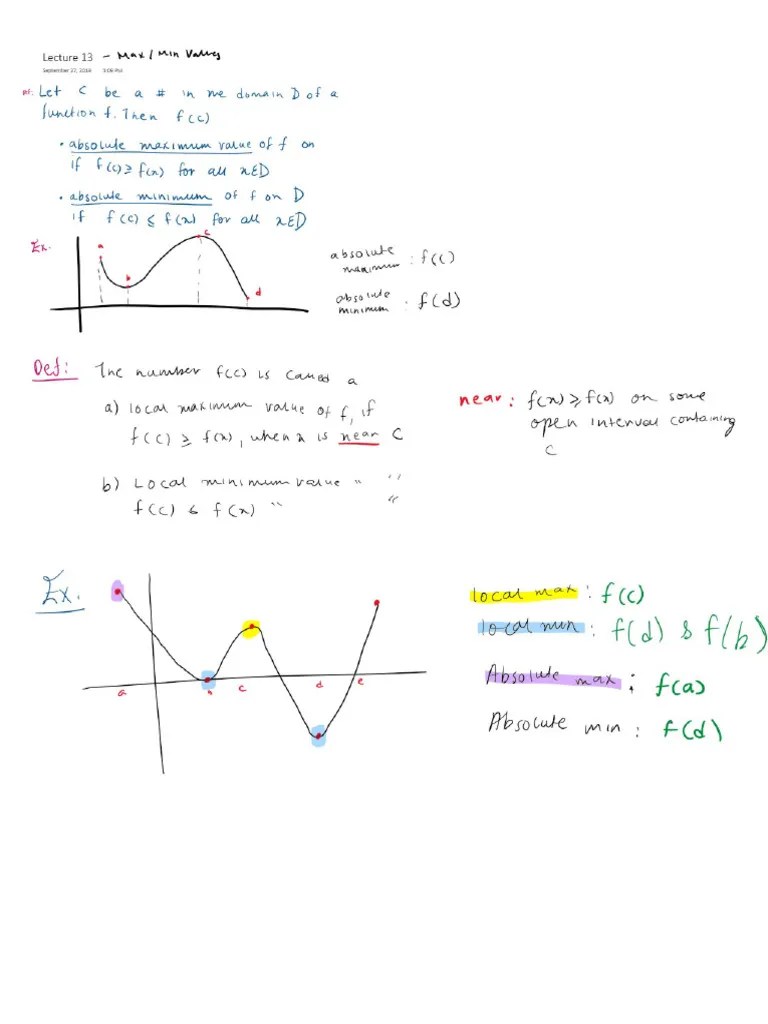 Lecture 13 - Max / Min Values
September 27, 2018 3:08 PM
Df: Let c be a # in the domain D of a
function f. Then f(c)
• absolute maximum value of f on
if f(c) ≥ f(x) for all x∈D
• absolute minimum of f on D
if f(c) ≤ f(x) for all x∈D
Ex.
a
b
c
d
absolute
maximum : f(c)
absolute
minimum : f(d)
Def: The number f(c) is called a
a) local maximum value of f, if
f(c) ≥ f(x), when x is near c
b) Local minimum value " "
f(c) ≤ f(x) " "
near: f(x) ≥ f(x) on some
open interval containing
c
Ex.
a
b
c
d
e
local max : f(c)
local min : f(d) & f(b)
Absolute max : f(a)
Absolute min : f(d)